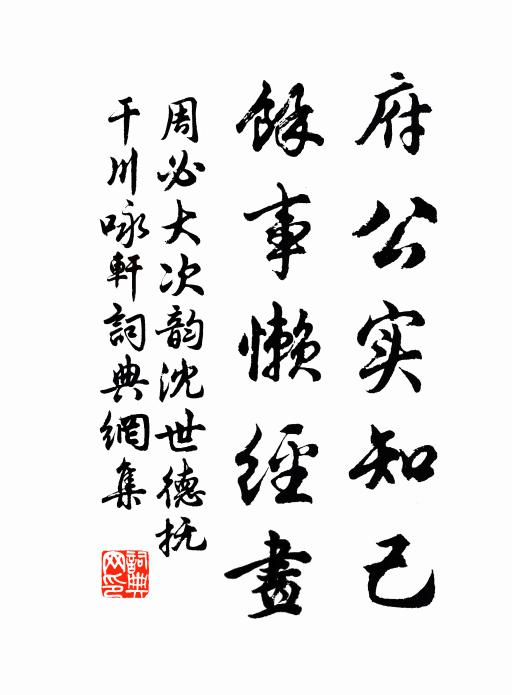 府公实知己
餘事懒經畫
周必大次韵沈世德抚
干川咏軒詞典網集
詞典
网印